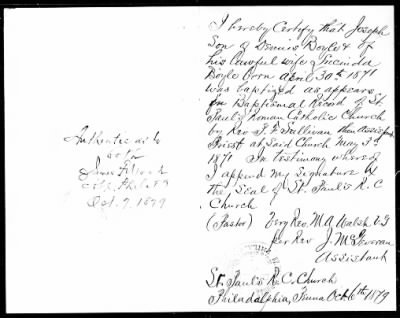 I hereby Certify that Joseph
Son of Dennis Boyle & of
his lawful wife Lucinda
Boyle Born April 30th 1871
was baptized as appears
in Baptismal Record of St.
Paul's Roman Catholic Church
by Rev. Sullivan then Assistant
Priest at Said Church May
1871 In testimony whereof
I append my Signature &
the Seal of St. Paul's R. C.
Church
(Pastor) Very Rev. M A Walsh V. G
per Rev J. Mc
Assistant
St. Paul's R. C. Church
Philadelphia, Penna Oct 6th 1879
Authentic as to
both
Oct. 7. 1879